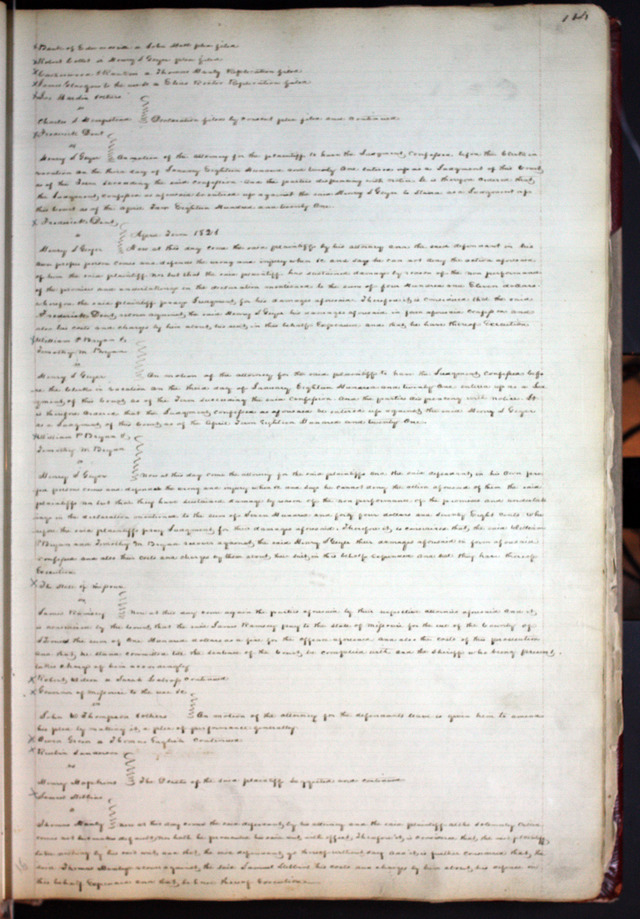 Bank of Edwardsville v John Hall plea filed
Robert Collet v Henry S Geyer plea filed
v Thomas Hanly Replication filed
James Glasgow to the use v Elias Rector Replication filed
Jos Hardin & others
vs
Charles S Hempstead Declaration filed by consent plea filed and continued
Frederick Dent
vs
Henry S Geyer On motion of the attorney for the plaintiff to have the Judgment, confessed before the Clerk in
vacation on the third day of January Eighteen Hundred and twenty One entered up as a Judgment of this Court,
as of the Term succeeding the said confession And the parties dispensing with notice It is therefore ordered that,
the Judgment, confessed as aforesaid be entered up against the said Henry S Geyer to stand as a Judgment of
this Court as of the April Term Eighteen Hundred and twenty One
Frederick Dent,
vs April Term 1821
Henry S Geyer Now at this day come the said plaintiff by his attorney and the said defendant in his
own proper person comes and defends the wrong and injury when &c and says he can not deny the action aforesaid
of him the said plaintiff nor but that the said plaintiff has sustained damage by reason of the non performance
of the promises and undertakings in the declaration mentioned to the sum of four Hundred and Eleven dollars
wherefore the said plaintiff prays Judgment, for his damages aforesaid Therefore it, is considered that the said
Frederick Dent, recover against, the said Henry S Geyer his damages aforesaid in form aforesaid confessed and
also his costs and charges by him about, his suit, in this behalf Expended and that, he have thereof Execution
William P Bryan &
Timothy M Bryan
vs
Henry S Geyer On motion of the attorney for the said plaintiffs to have the Judgment, confessed befo
re the Clerk in vacation on the third day of January Eighteen Hundred and twenty One entered up as a Jud
gment, of this Court, as of the Term succeeding the said confession And the parties dispensing with notice It
is therefore Ordered that the Judgment confessed as aforesaid be entered up against, the said Henry S Geyer
as a Judgment, of this Court, as of the April Term Eighteen Hundred and twenty One.
William P Bryan &
Timothy M Bryan
vs
Henry S Geyer Now at this day come the attorney for the said plaintiffs and the said defendant, in his Own pro
per person comes and defends the wrong and injury when &c and says he cannot deny the action aforesaid of them the said
plaintiffs nor but that they have sustained damage by reason of the non performance of the promises and undertak
ings in the declaration mentioned to the sum of Hundred and forty four dollars and twenty Eight Cents Whe
refore the said plaintiffs pray Judgment, for their damages aforesaid. Therefore it, is considered that, the said William
P Bryan and Timothy M Bryan recover against, the said Henry S Geyer their damages aforesaid in form aforesaid
confessed and also their costs and charges by them about, their suit, in this behalf Expended and that they have thereof
Execution
The State of Missouri
vs
James Ramsey Now at this day come again the parties aforesaid by their respective attornies aforesaid And it,
is considered by the Court, that the said James Ramsey pay to the State of Missouri for the use of the County of
St Louis the sum of One Hundred dollars as a fine for the offence aforesaid and also the costs of this prosecution
and that, he stand committed till the sentence of the Court, be complied with and the Sheriff who being present,
takes charge of him accordingly
Robert, v Continued
Governor of Missouri to the use &c
vs
John W Thompson & others On motion of the attorney for the defendants leave is given him to amend
his plea by making it, a plea of performance generally
Owen v Thomas English Continued
Reuben
vs
Henry Hopkins The Death of the said plaintiff suggested and continued
Samuel
vs
Thomas Hanly Now at this day comes the said defendant, by his attorney and the said plaintiff altho solemnly called
comes not but makes default, nor doth he prosecute his suit, with effect, Therefore it, is considered that, the said plaintiff,
take nothing by his suit and that, the said defendant, go thereof without day and it, is further considered that, the
said Thomas Hanly recover against, the said Samuel his costs and charges by him about, his defence in
this behalf Expended and that, he have thereof Execution